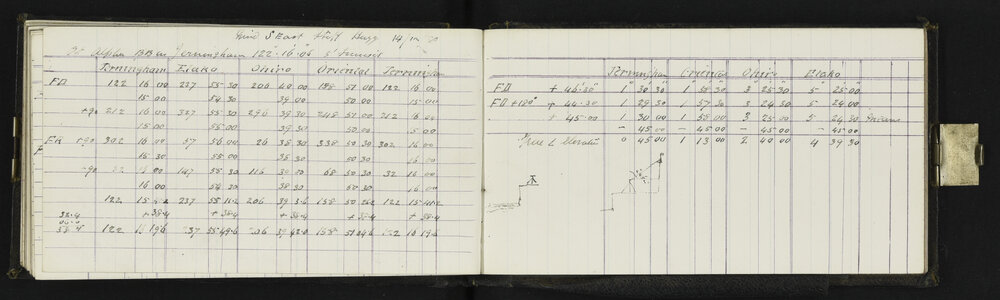 Wind S East
at Alpha BB on Jerningham 122° 16' 06"
Jerningham Kiako Ohiro Oriental Jerningham
FD 122 16 00 237 55 30 206 40 00 158 51 00 122 16 00
15 00 54 30 39 00 50 00 15 00
+90 212 16 00 327 55 30 296 39 30 248 51 00 212 16 00
15 00 55 00 39 30 50 00 15 00
FR +90 302 16 00 57 56 00 26 38 30 338 50 30 302 16 00
15 30 55 00 38 30 50 30 16 00
+90 32 16 00 147 55 30 116 39 00 68 50 30 32 16 00
16 00 54 30 38 30 50 30 16 00
122 237 55 206 39 158 50 122 15
38.4 +38.4 +38.4 +38.4 +38.4 +38.4
122 237 55 49.6 206 158 51 122 16 19.6
Jerningham Oriental Ohiro Kiako
FD + 46.30 1 30 30 1 58 30 3 25 30 5 25 00
FD +180° 44.30 1 29 30 1 57 30 3 24 30 5 24 00
+ 45.00 1 30 00 1 58 00 3 25 00 5 24 30 means
- 45 00 - 45 00 - 45 00 - 45 00
True 0 45 00 1 13 00 2 40 00 4 39 30